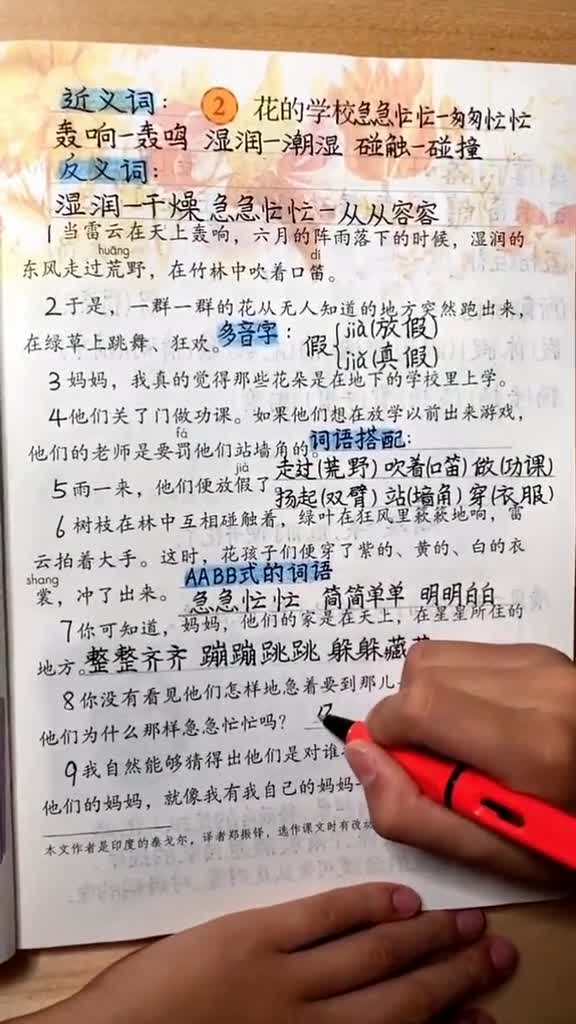 近义词: 2 花的学校 急急忙忙一匆匆忙忙
轰响一轰鸣 湿润一潮湿 碰触一碰撞
反义词:
湿润一干燥 急急忙忙一从从容容
1 当雷云在天上轰响，六月的阵雨落下的时候，湿润的
huāng dí
东风走过荒野，在竹林中吹着口笛。
2 于是，一群一群的花从无人知道的地方突然跑出来，
在绿草上跳舞、狂欢。多音字: 假{jià(放假)
jiǎ(真假)
3 妈妈，我真的觉得那些花朵是在地下的学校里上学。
4 他们关了门做功课。如果他们想在放学以前出来游戏，
fá
他们的老师是要罚他们站墙角的。词语搭配:
jià
走过(荒野) 吹着(口笛) 做(功课)
5 雨一来，他们便放假了
扬起(双臂) 站(墙角) 穿(衣服)
6 树枝在林中互相碰触着，绿叶在狂风里簌簌地响，雷
云拍着大手。这时，花孩子们便穿了紫的、黄的、白的衣
shang AABB式的词语
裳，冲了出来。 急急忙忙 简简单单 明明白白
7 你可知道，妈妈，他们的家是在天上，在星星所住的
地方。整整齐齐 蹦蹦跳跳 躲躲藏
8 你没有看见他们怎样地急着要到那儿
他们为什么那样急急忙忙吗？
9 我自然能够猜得出他们是对谁
他们的妈妈，就像我有我自己的妈妈一
本文作者是印度的泰戈尔，译者郑振铎，选作课文时有改